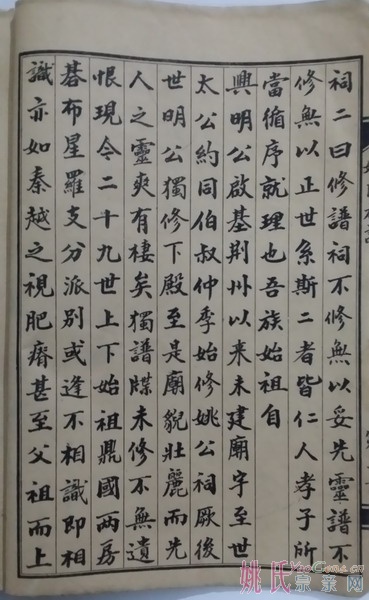 祠二曰修譜祠不修無以妥先靈譜不
修無以正世系斯二者皆仁人孝子所
當循序就理也吾族始祖自
興明公啟基荆州以来未建廟宇至世
太公約同伯叔仲季始修姚公祠厥後
世明公獨修下殿至是廟貌壯麗而先
人之靈爽有棲矣獨譜牒未修不無遺
恨現今二十九世上下始祖鼎國两房
碁布星羅支分派别或逢不相識即相
識亦如秦越之視肥瘠甚至父祖而上
姚氏宗亲网
YaoGens.cn